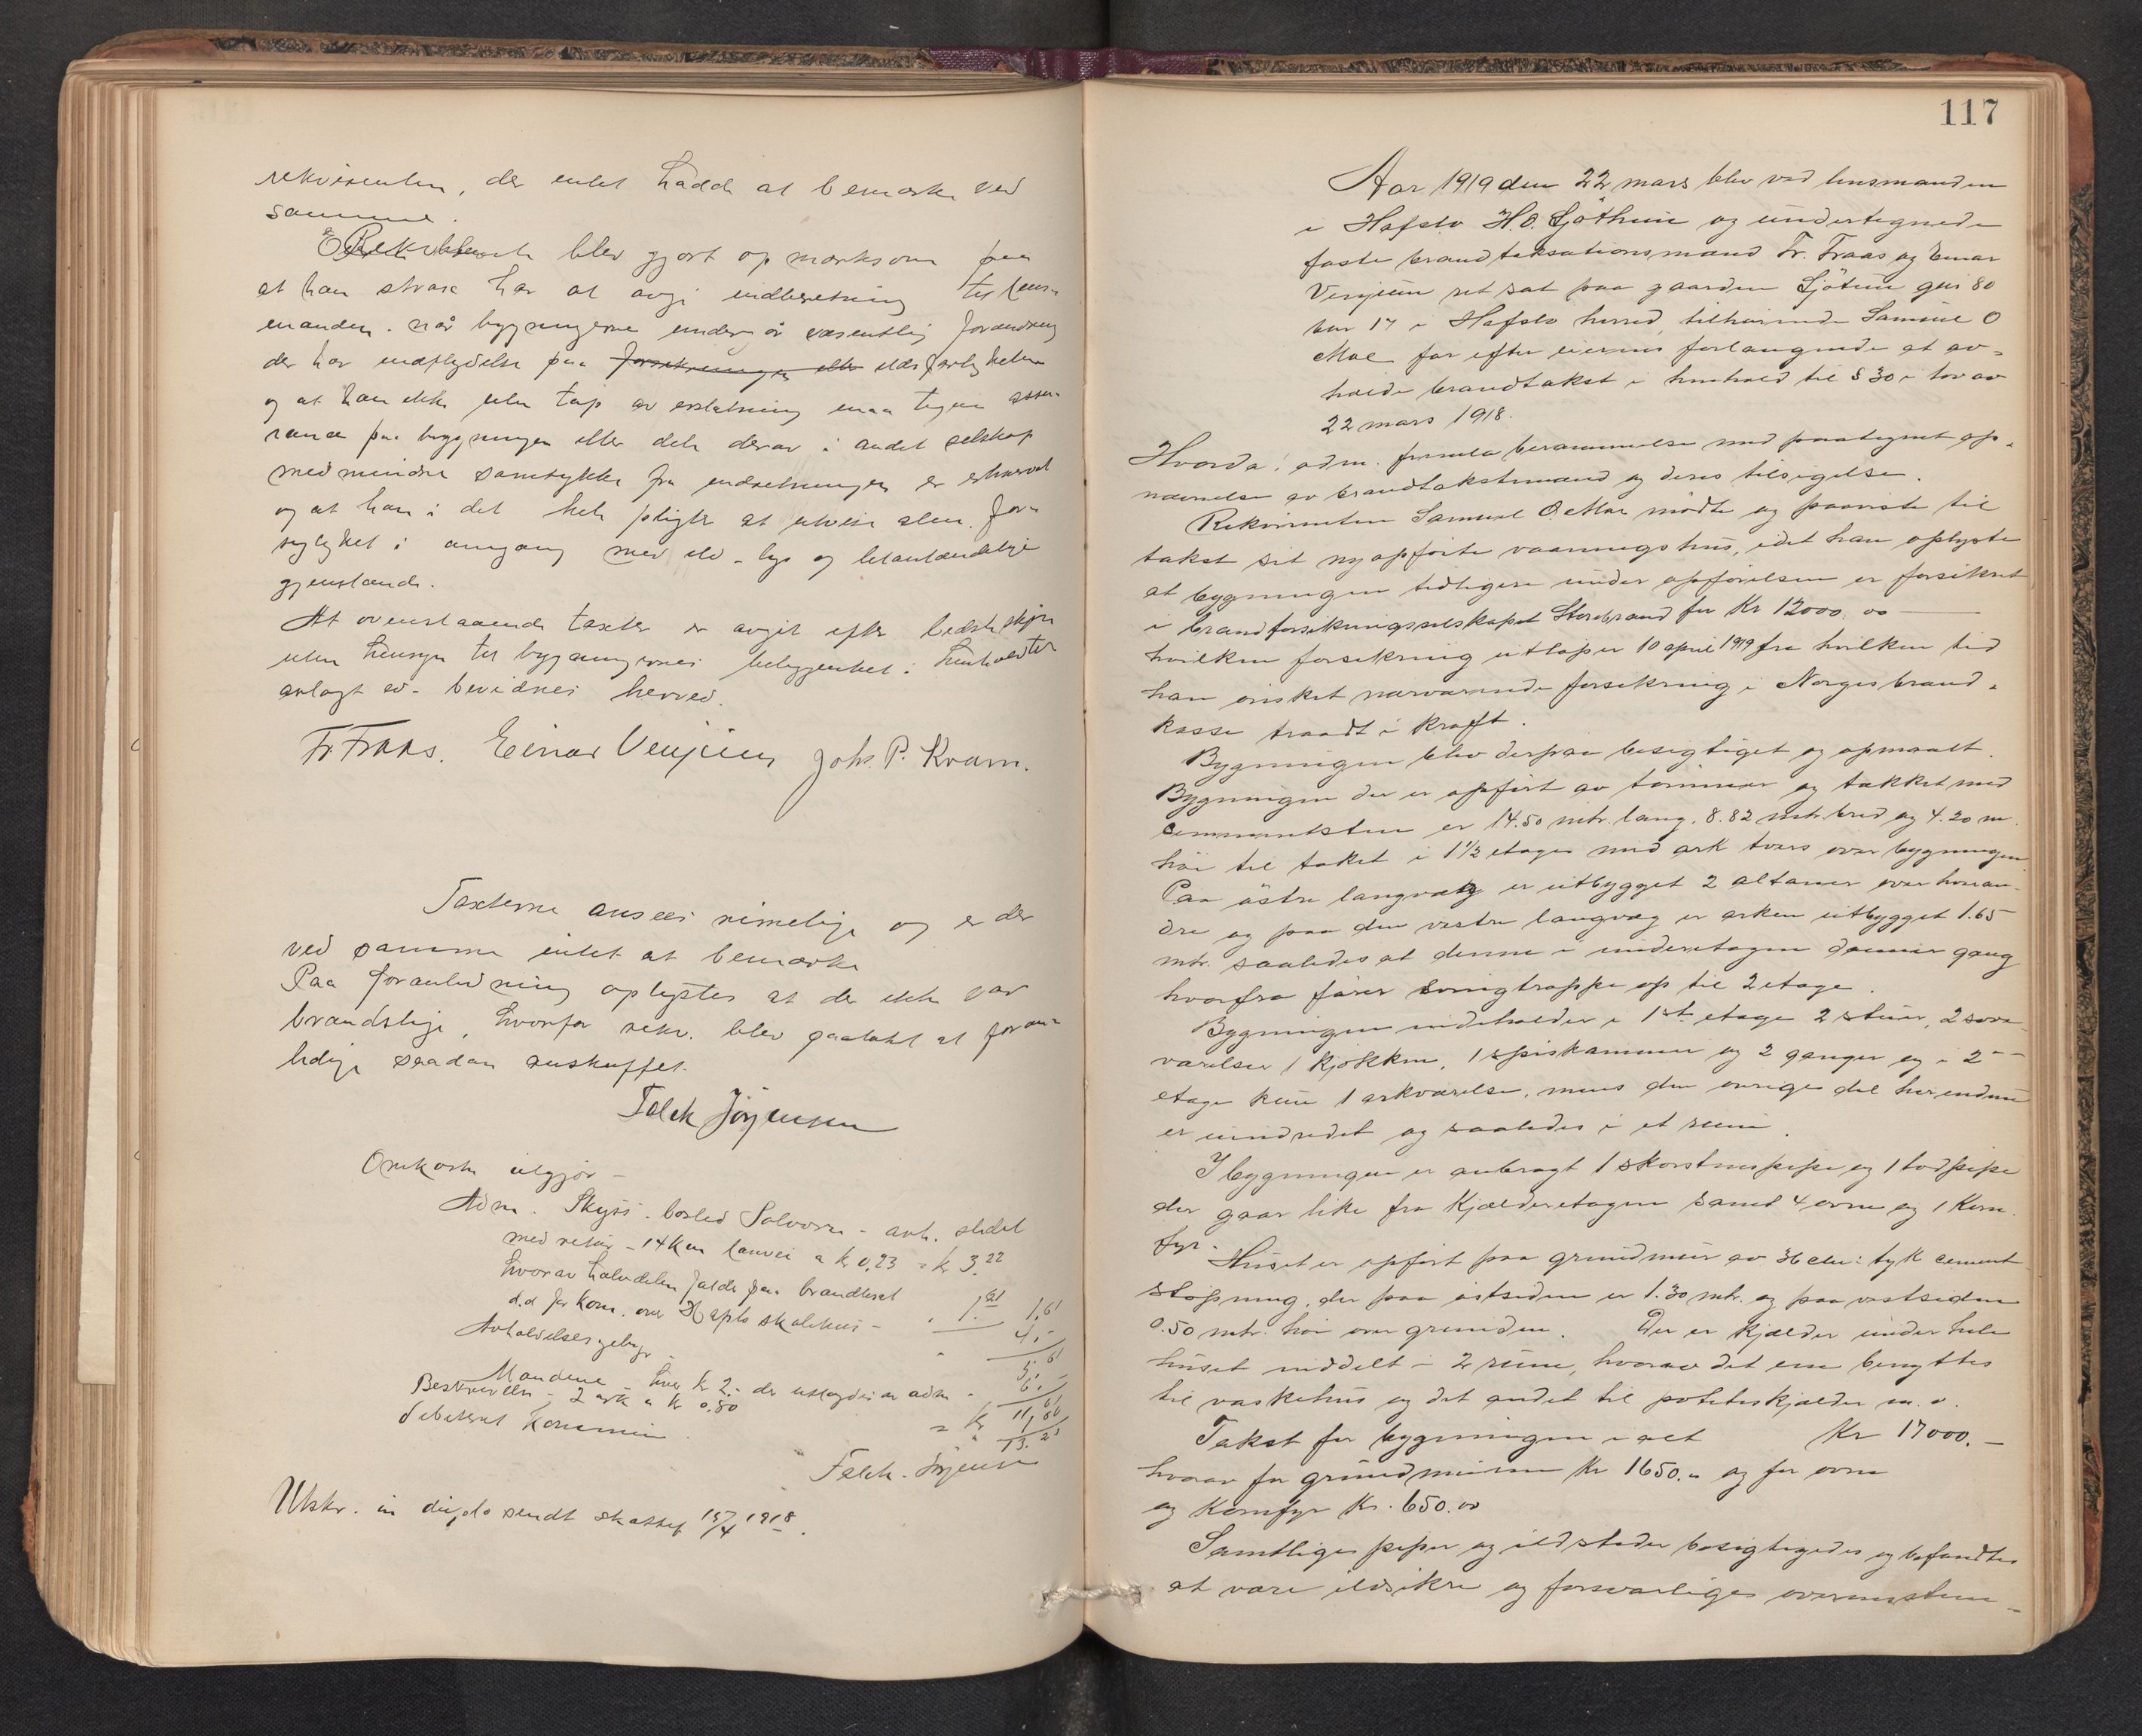 rekvirenten, der intet hadde at bemerke ved
samme.
Rekvirenten blev gjort opmerksom paa
at han straks har at avgi indberetning til lens-
manden. når bygningerne undergår væsentlig forandring
der har indflydelse paa forsikringen eller ildsfarligheten
og at han ikke uten tap av erstatning maa tegne assu-
rance paa bygningen eller dele derav i andet selskap
med mindre samtykke fra indretningen er erhvervet
og at han i det hele pligter at utvise alm. for-
sigtighet i omgang med ild - lys og letantændelige
gjenstande.
At ovenstaaende taxter er avgit efter bedste skjøn
uten hensyn til bygningernes beliggenhet i henhold til
avlagt ed - bevidnes herved.
Fr. Fraas. Einar Venjum Johs. P. Kvam.
Taxterne ansees rimelige og er der
ved samme intet at bemærke
Paa foranledning oplystes at der ikke var
brandstige, hvorfor rekv. blev paalakt at foran-
ledige saadan anskaffet.
Falck Jørgensen
Omkostn utgjør -
Adm. Skyss. bosted Solvorn - avh. stedet
med retur - 14 Km lanvei a kr 0,23 = kr 3.22
hvorav halvdelen falder paa brandtaxt
d.d for kom. over Hafslo skolehus - " 1.61 1,61
Avholdelsesgebyr - " 4,-
5.61
Mændene hver kr 2.- der utlægdes av adm - 6.-
Beskrivelse - 2 ark a kr 0,80 = kr 11,61
debiteret kommunen " 13.21
Falck. Jørgensen
Utskr. in duplo sendt skattef 15/4 1918.
117
Aar 1919 den 22 mars blev ved lensmanden
i Hafslo H. O. Sjøthun og undertegnede
faste brandtaksationsmænd Fr. Fraas og Einar
Venjum ret sat paa gaarden Sjøtun gnr 80
bnr 17 i Hafslo herred, tilhørende Samuel O
Moe for efter eierens forlangende at av-
holde brandtakst i henhold til § 30 i lov av
22 mars 1918.
Hvorda: adm. fremla berammelse med paategnet op-
nævnelse av brandtakstmænd og deres tilsigelse.
Rekvirenten Samuel O. Moe mødte og paaviste til
takst sit nyopførte vaaningshus, idet han oplyste
at bygningen tidligere under opførelsen er forsikret
i brandforsikringsselskapet Storebrand for Kr 12000.00
hvilken forsikring utløper 10 april 1919 fra hvilken tid
han ønsket nærværende forsikring i Norges brand-
kasse traadt i kraft.
Bygningen blev derpaa besigtiget og opmaalt.
Bygningen der er opført av tømmer og tækket med
cementsten er 14.50 mtr. lang, 8.82 mtr. bred og 4.20 m.
høi til taket i 1 1/2 etage med ark tvers over bygningen
Paa østre langvæg er utbygget 2 altaner over hveran-
dre og paa den vestre langvæg er arken utbygget 1.65
mtr. saaledes at denne i underetagen danner gang
hvorfra fører svingtrappe op til 2 etage.
Bygningen indeholder i 1ste etage 2 stuer, 2 sove-
værelser 1 kjøkken, 1 spiskammer og 2 ganger og i 2--
etage kun 1 arkværelse, mens den øvrige del her endnu
er uindredet og saaledes i et rum.
I bygningen er anbragt 1 skorstenspipe og 1 lodpipe
der gaar like fra kjælderetagen samt 4 ovne og 1 kom-
fyr.
Huset er opført paa grundmur av 36 ctm. tyk cement
støpning, der paa østsiden er 1.30 mtr. og paa vestsiden
0.50 mtr. høi over grunden. Der er kjælder under hele
huset inddelt i 2 rum, hvorav det ene benyttes
til vaskehus og det andet til potetskjælder m. v.
Takst for bygningen i alt Kr 17000.-
hvorav for grundmuren Kr 1650.- og for ovne
og komfyr Kr. 650.00
Samtlige piper og ildsteder besigtigedes og befandtes
at være ildsikre og forsvarlige overensstem-